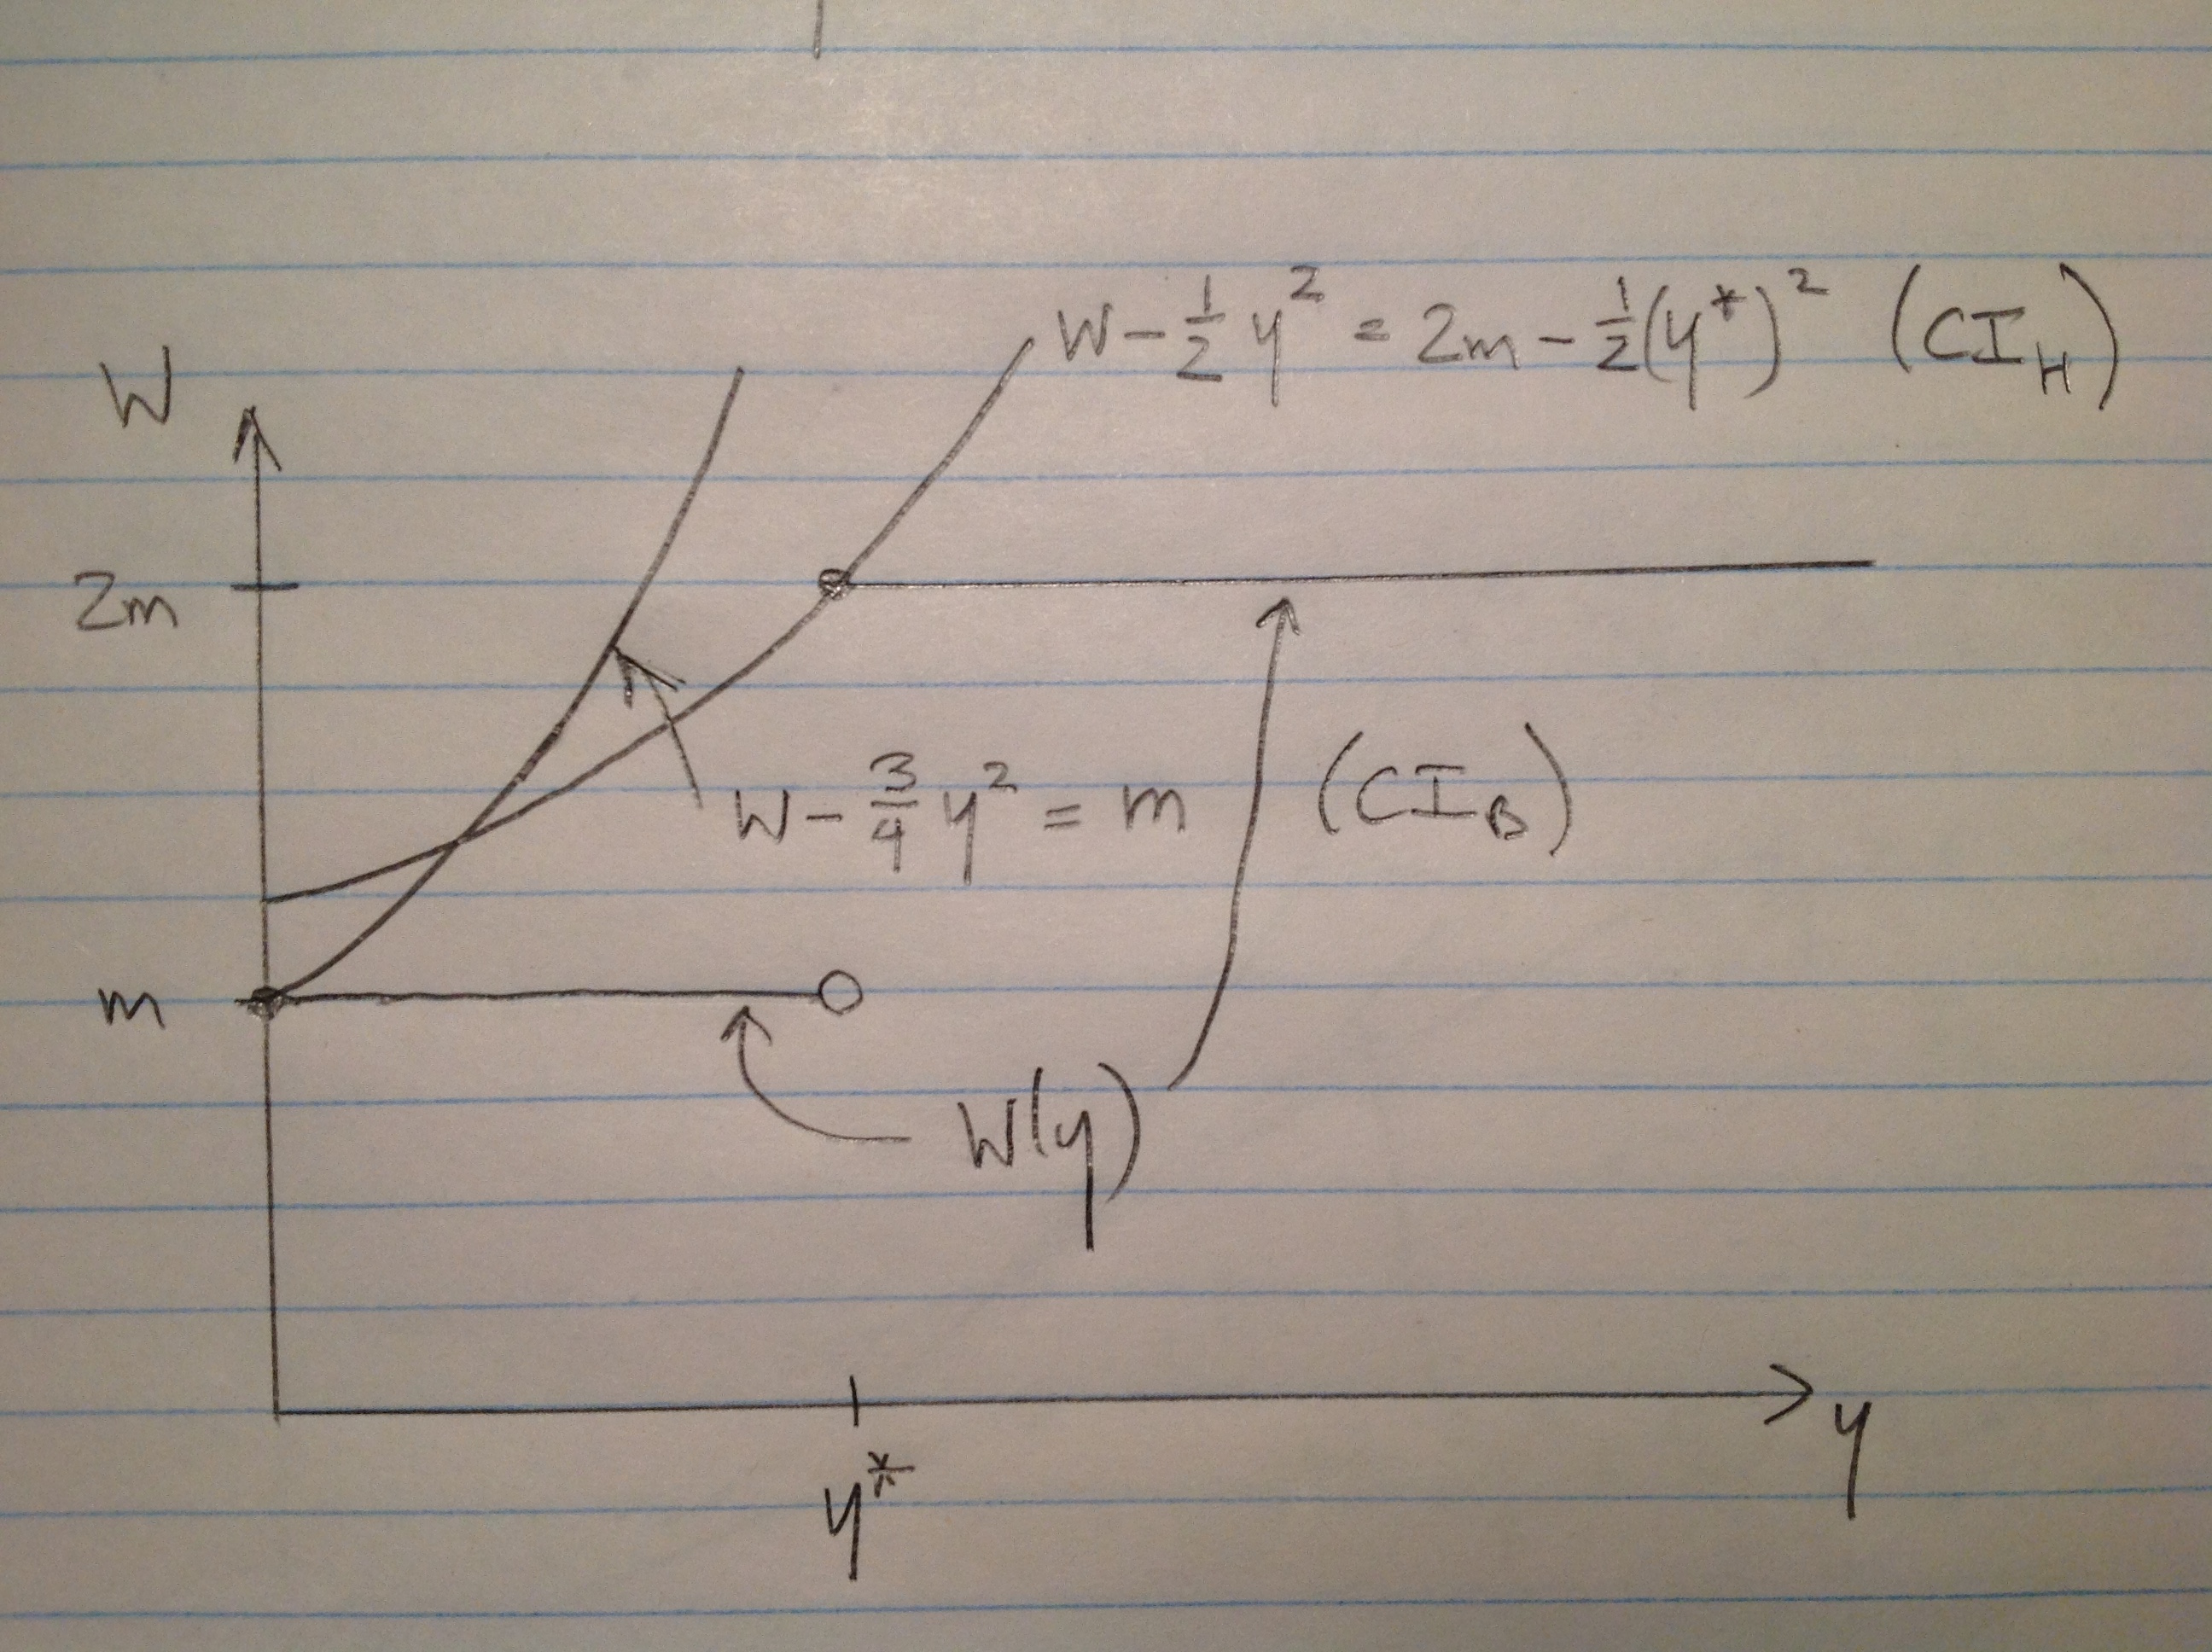 W - 1/2 y² = 2m - 1/2 (y*)² (CI_H)
W
2m
W - 3/4 y² = m (CI_B)
m
W(y)
y
y*